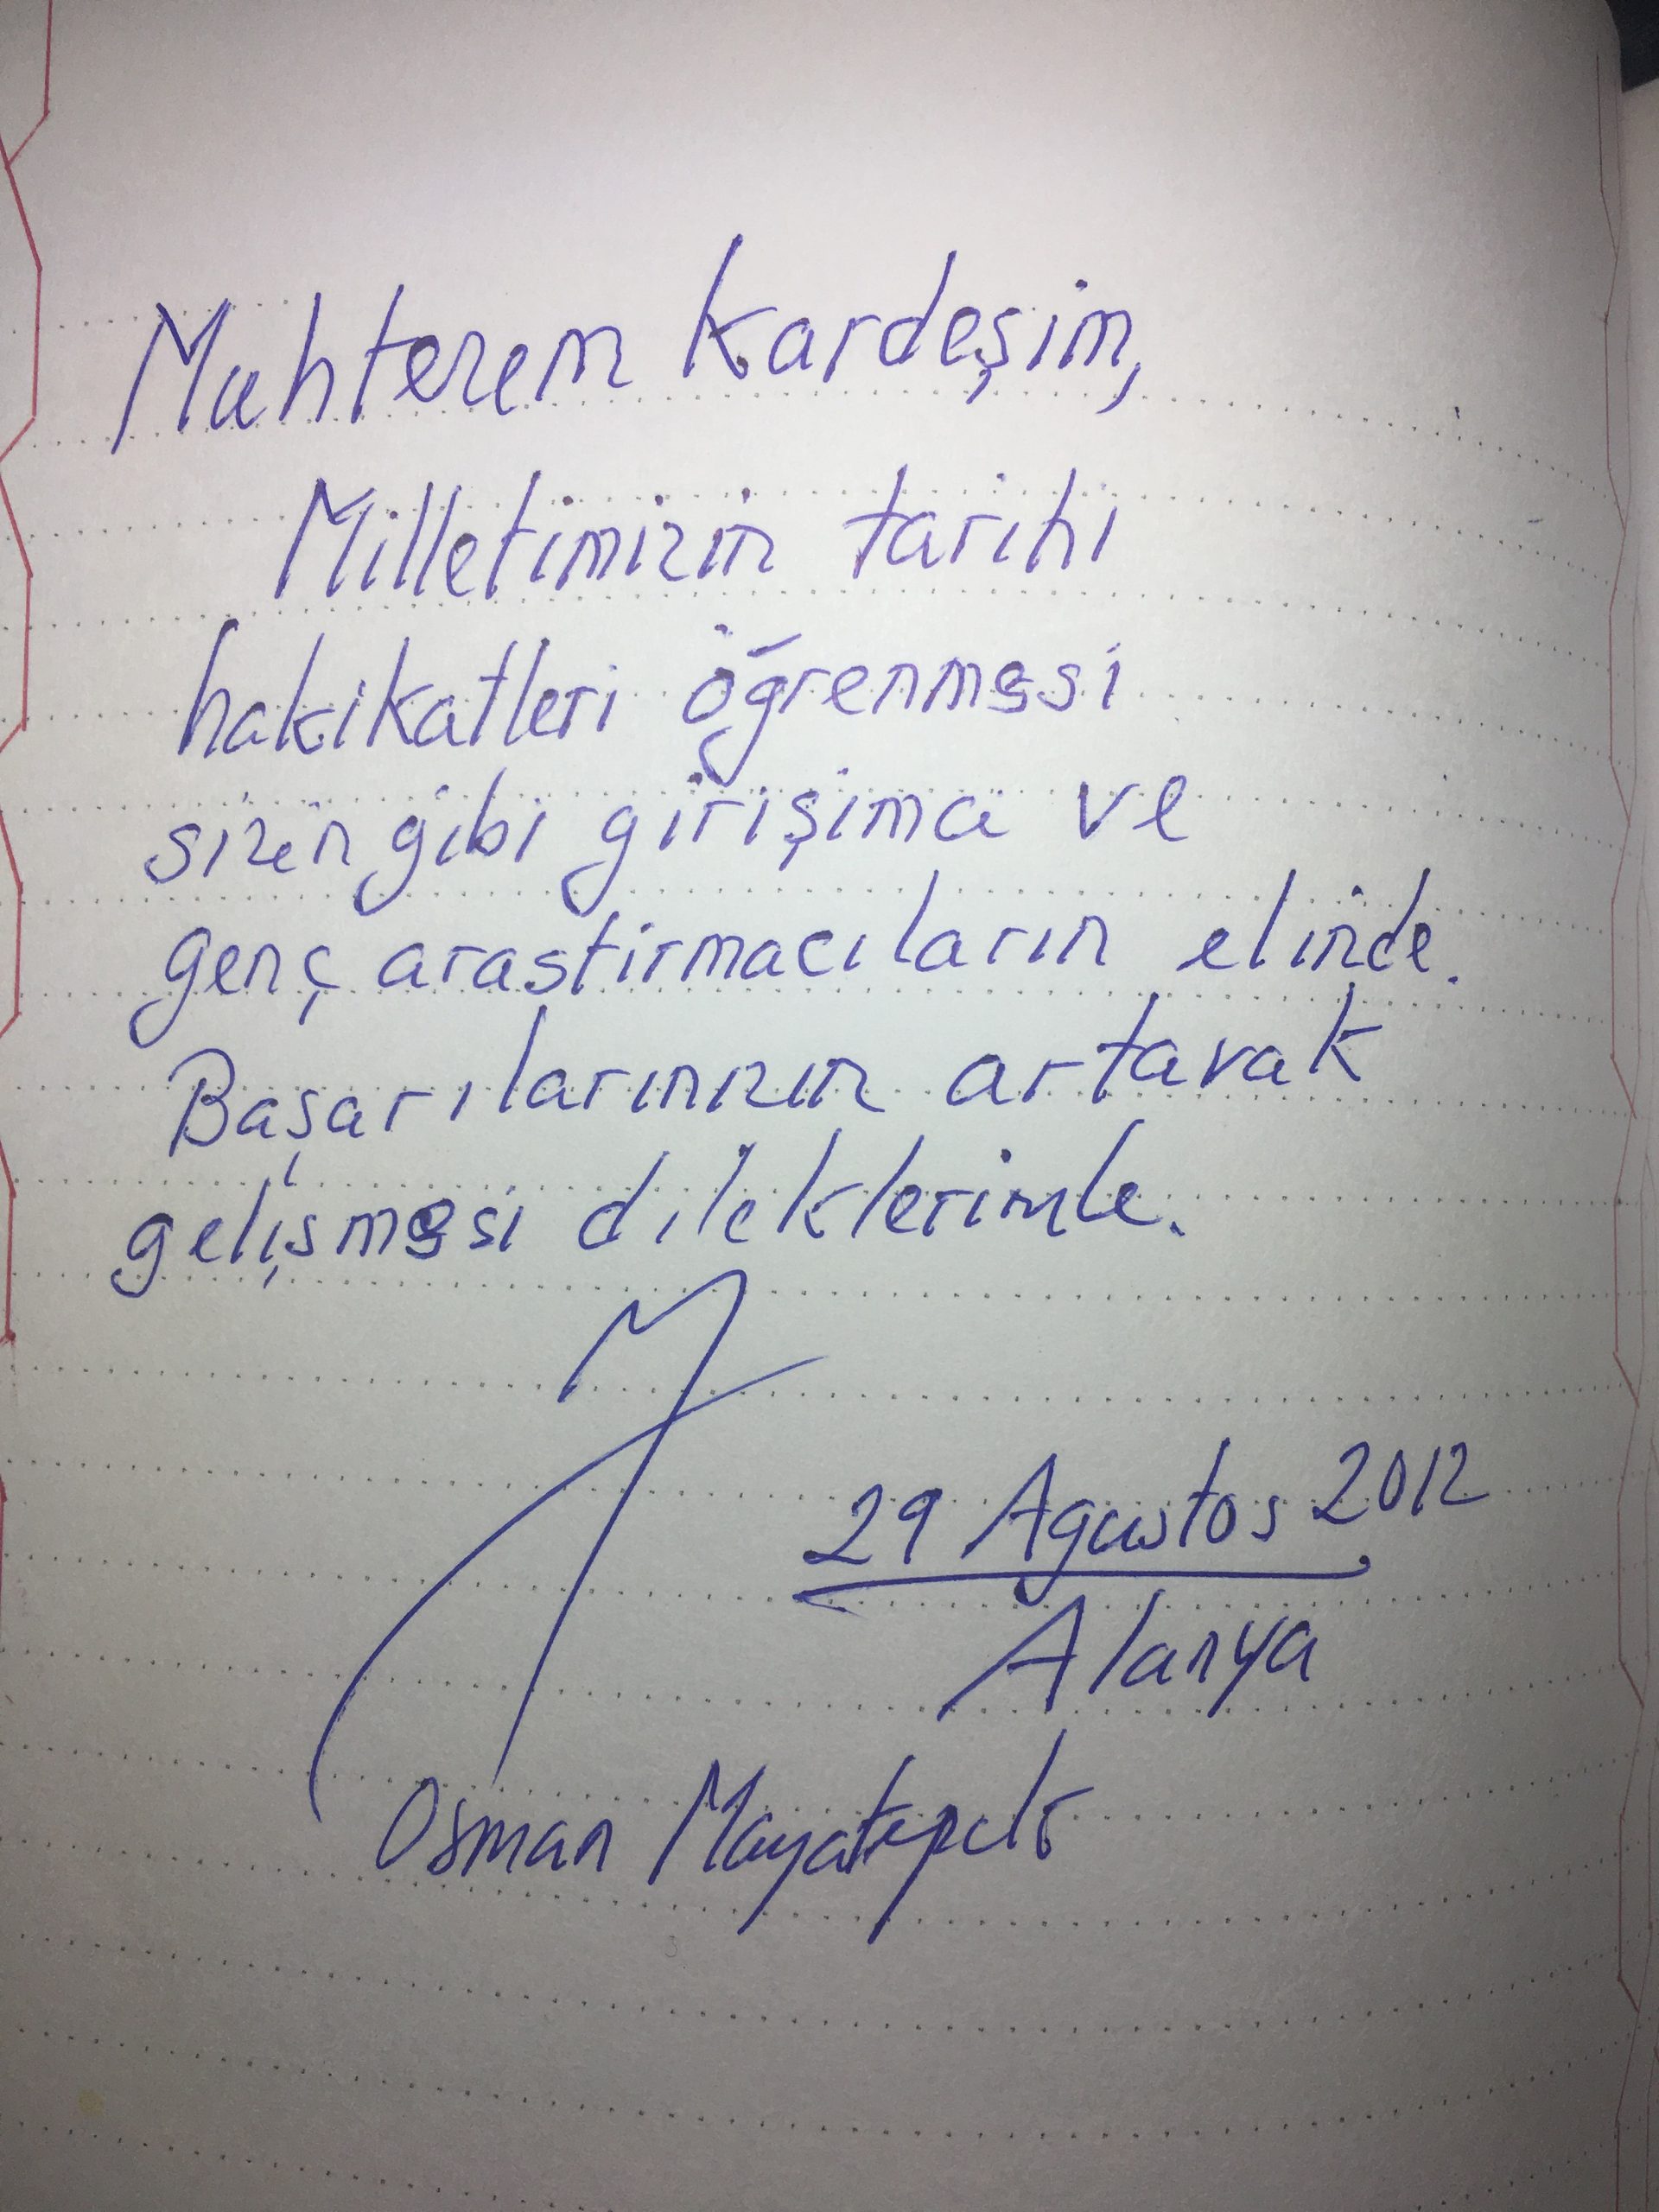 Muhterem Kardeşim,
Milletimizin tarihi
hakikatleri öğrenmesi
sizin gibi girişimci ve
genç arastirmacıların elinde.
Başarılarınızın artarak
gelişmesi dileklerimle.
29 Ağustos 2012
Alanya
Osman Mayatepek